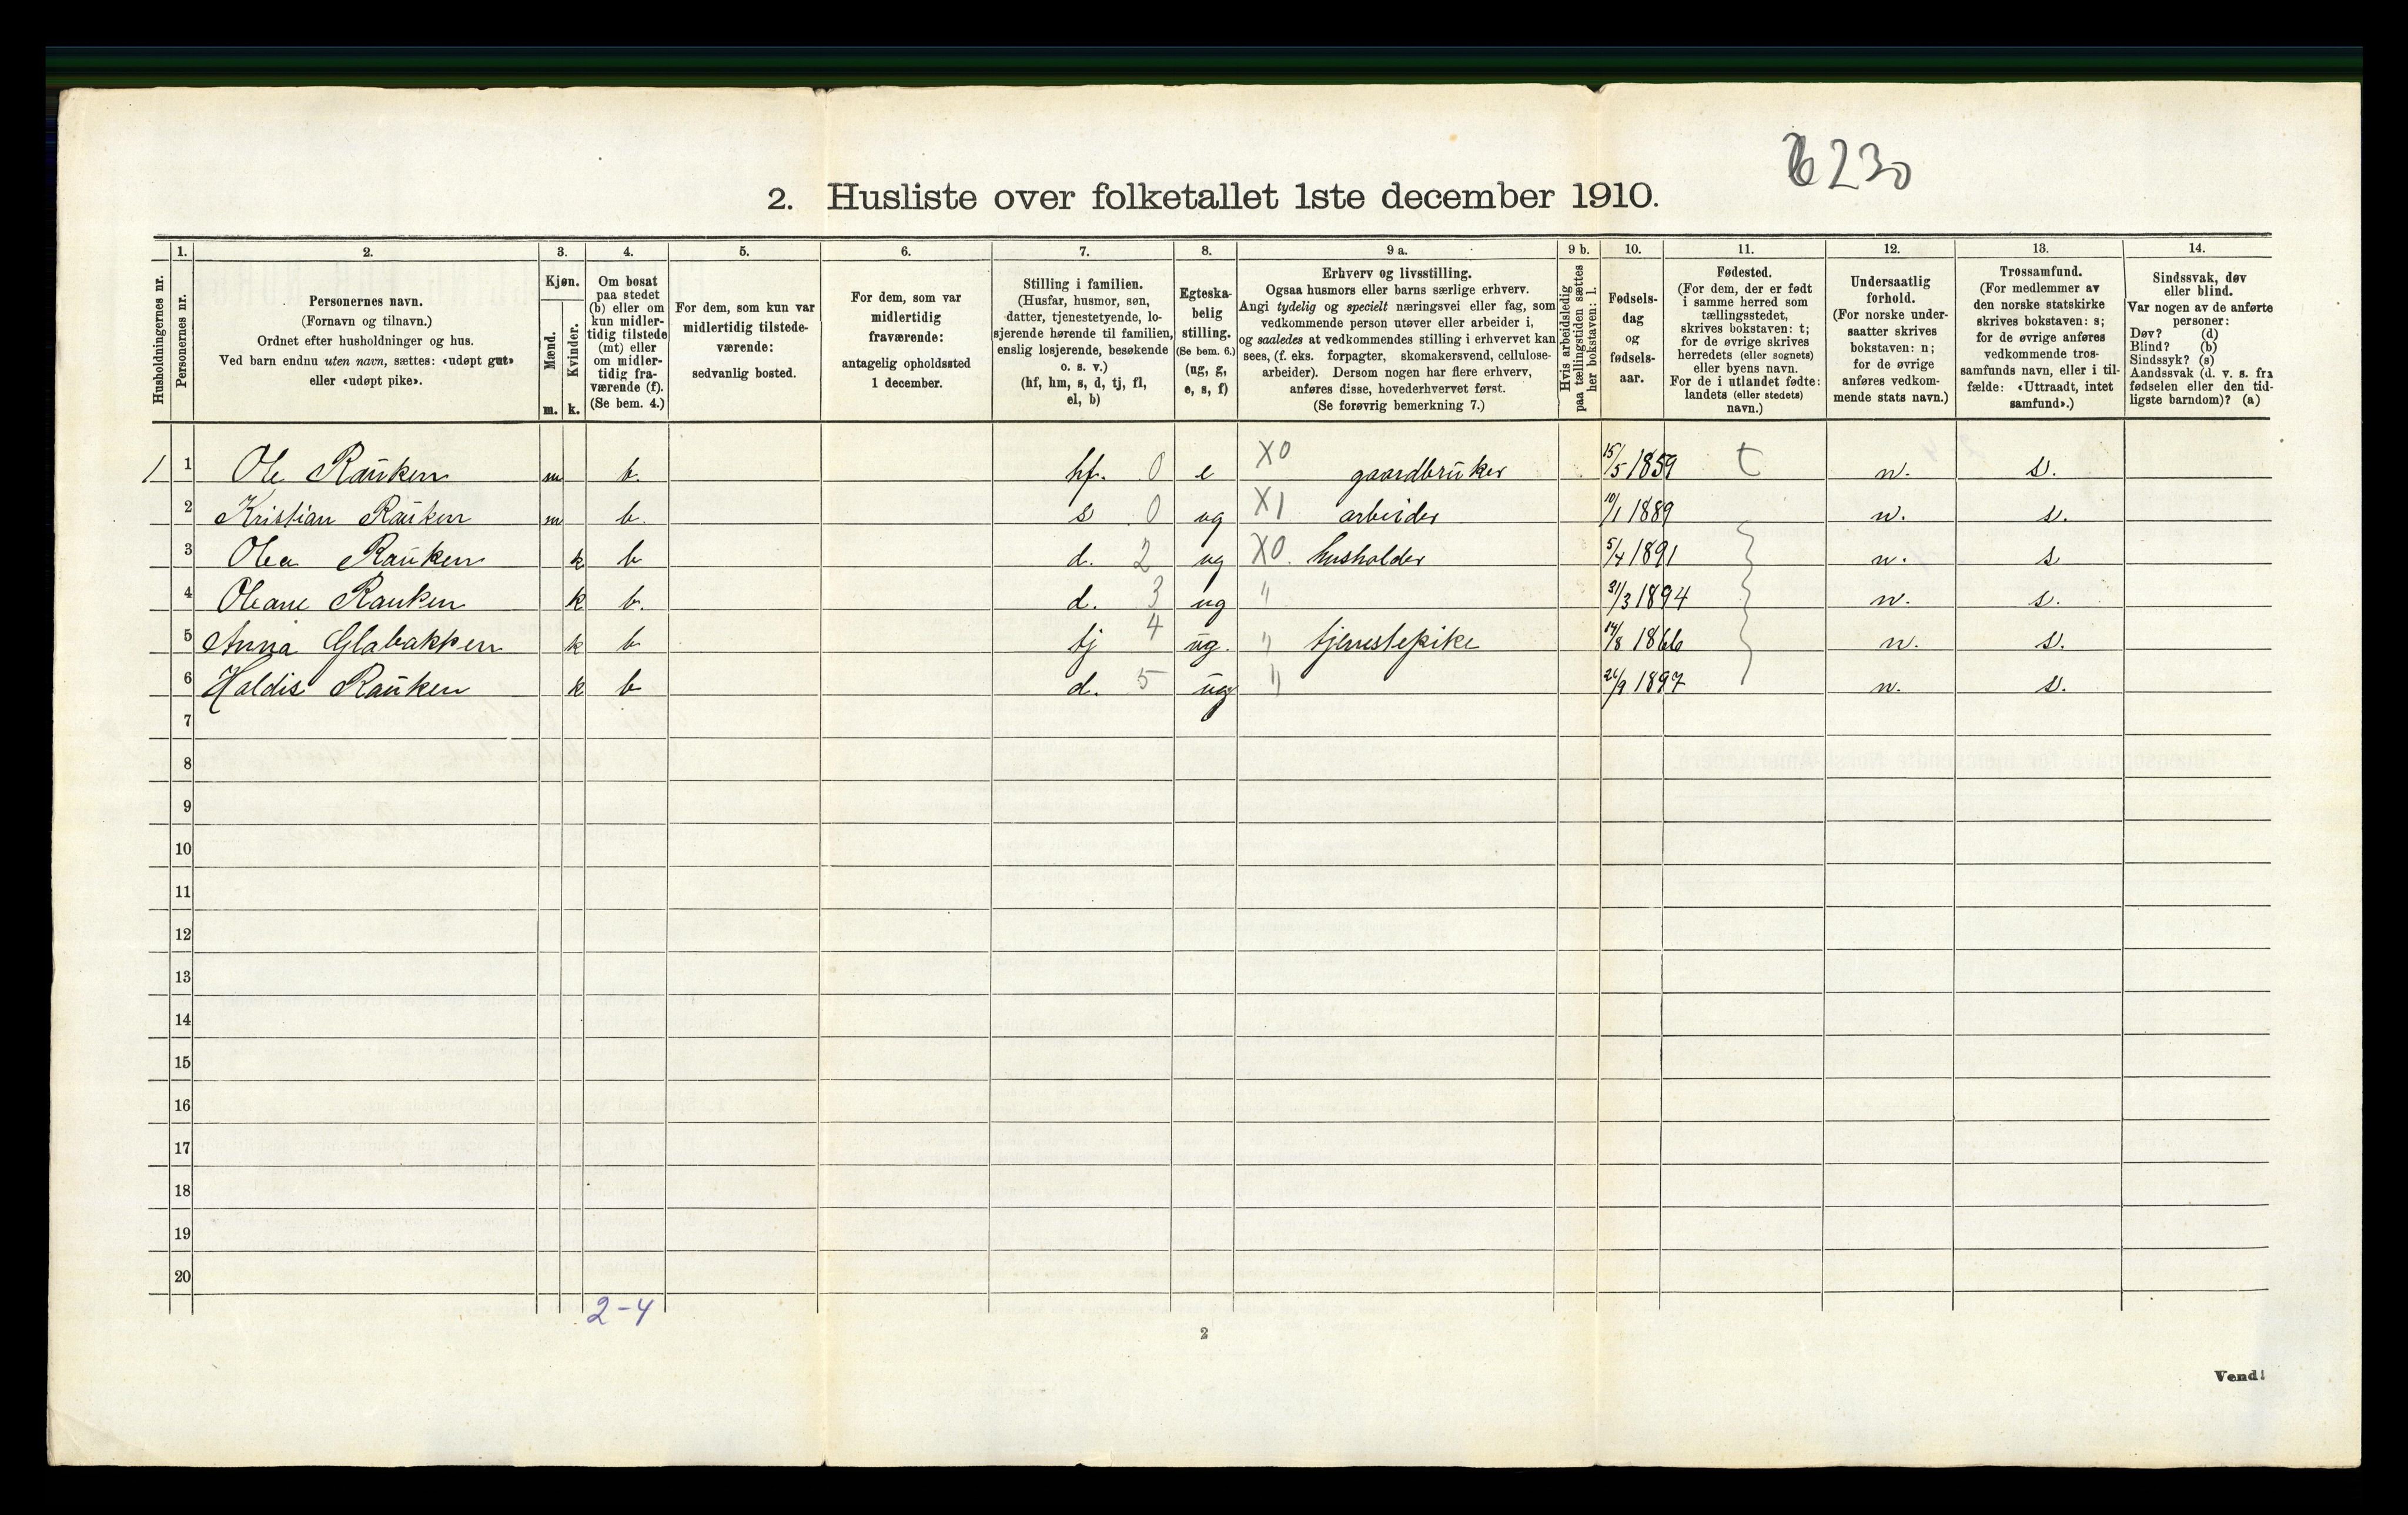 6230
2. Husliste over folketallet 1ste december 1910.
Husholdningernes nr.
1.
Personernes nr.
2.
Personernes navn.
(Fornavn og tilnavn.)
Ordnet efter husholdninger og hus.
Ved barn endnu uten navn, sættes: «udøpt gut»
eller «udøpt pike».
3.
Kjøn.
Mænd.
m.
Kvinder.
k.
4.
Om bosat
paa stedet
(b) eller om
kun midler-
tidig tilstede
(mt) eller
om midler-
tidig fra-
værende (f).
(Se bem. 4.)
5.
For dem, som kun var
midlertidig tilstede-
værende:
sedvanlig bosted.
6.
For dem, som var
midlertidig
fraværende:
antagelig opholdssted
1 december.
7.
Stilling i familien.
(Husfar, husmor, søn,
datter, tjenestetyende, lo-
sjerende hørende til familien,
enslig losjerende, besøkende
o. s. v.)
(hf, hm, s, d, tj, fl,
el, b)
8.
Egteska-
belig
stilling.
(Se bem. 6.)
(ug, g,
e, s, f)
9 a.
Erhverv og livsstilling.
Ogsaa husmors eller barns særlige erhverv.
Angi tydelig og specielt næringsvei eller fag, som
vedkommende person utøver eller arbeider i,
og saaledes at vedkommendes stilling i erhvervet kan
sees, (f. eks. forpagter, skomakersvend, cellulose-
arbeider). Dersom nogen har flere erhverv,
anføres disse, hovederhvervet først.
(Se forøvrig bemerkning 7.)
9 b.
Hvis arbeidsledig
paa tællingstiden sættes
her bokstaven: l.
10.
Fødsels-
dag
og
fødsels-
aar.
11.
Fødested.
(For dem, der er født
i samme herred som
tællingsstedet,
skrives bokstaven: t;
for de øvrige skrives
herredets (eller sognets)
eller byens navn.
For de i utlandet fødte:
landets (eller stedets)
navn.)
12.
Undersaatlig
forhold.
(For norske under-
saatter skrives
bokstaven: n;
for de øvrige
anføres vedkom-
mende stats navn.)
13.
Trossamfund.
(For medlemmer av
den norske statskirke
skrives bokstaven: s;
for de øvrige anføres
vedkommende tros-
samfunds navn, eller i til-
fælde: «Uttraadt, intet
samfund».)
14.
Sindssvak, døv
eller blind.
Var nogen av de anførte
personer:
Døv? (d)
Blind? (b)
Sindssyk? (s)
Aandssvak (d. v. s. fra
fødselen eller den tid-
ligste barndom)? (a)
1 1 Ole Rauken m b. hf. 0 e X0 gaardbruker 15/5 1859 t n. s.
2 Kristian Rauken m b. s 0 ug X1 arbeider 10/1 1889 n. s.
3 Olea Rauken k b d. 2 ug X0. husholder 5/4 1891 n. s
4 Oleane Rauken k b. d. 3 ug " 31/3 1894 n. s.
5 Anna Glabakken k b tj 4 ug. " tjenestepike 14/8 1866 n. s.
6 Haldis Rauken k b d. 5 ug " 26/9 1897 n. s.
7
8
9
10
11
12
13
14
15
16
17
18
19
20
2-4
2
Vend!